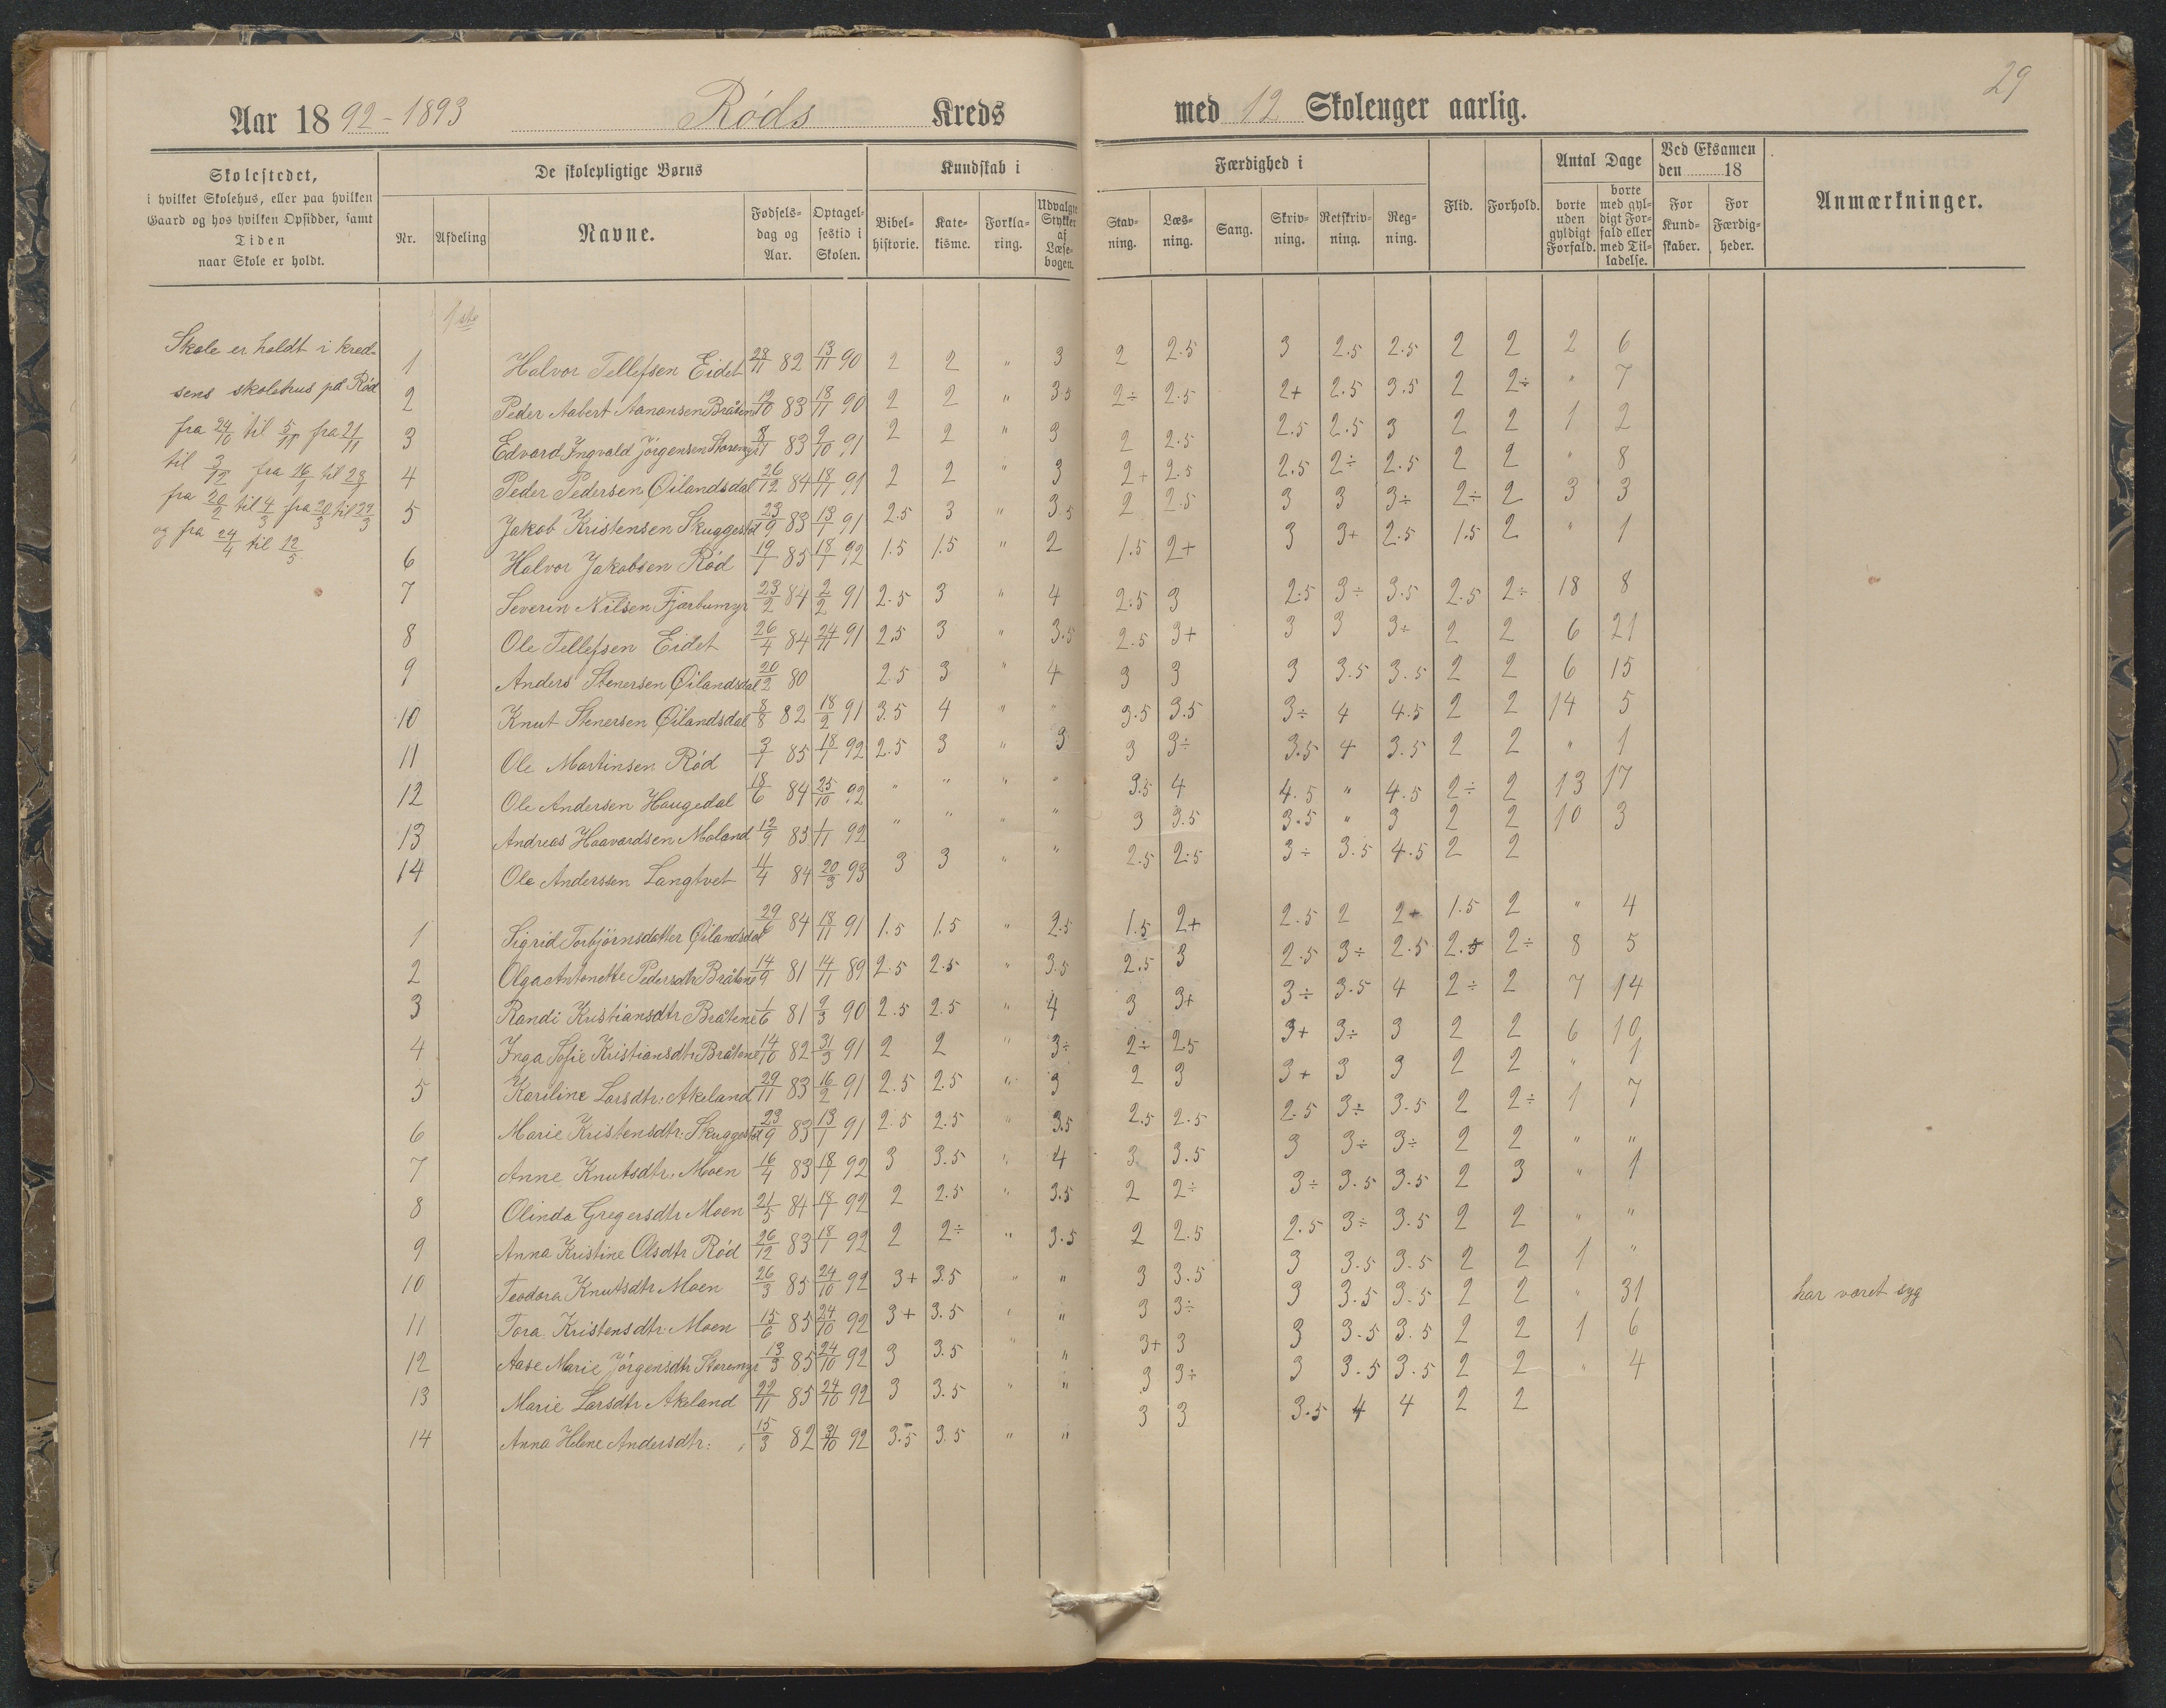 29
Aar 1892-1893 Röds Kreds med 12 Skolenger aarlig.
Skolestedet,
i hvilket Skolehus, eller paa hvilken
Gaard og hos hvilken Opsidder, samt
Tiden
naar Skole er holdt.
De skolepligtige Børns
Nr. Afdeling Navne. Fødselsdag og Aar. Optagelsestid i Skolen.
Kundskab i
Bibelhistorie. Katekisme. Forklaring. Udvalgte Stykker af Læsebogen.
Færdighed i
Stavning. Læsning. Sang. Skrivning. Retskrivning. Regning.
Flid. Forhold.
Antal Dage
borte uden gyldigt Forfald. borte med gyldigt Forfald eller med Tilladelse.
Ved Eksamen
den 18
For Kundskaber. For Færdigheder.
Anmærkninger.
1ste
Skole er holdt i kred-
sens skolehus på Röd
fra 24/10 til 5/11 fra 21/11
til 3/12 fra 16/1 til 28/1
fra 20/2 til 4/3 fra 20/3 til 29/3
og fra 24/4 til 12/5
1 Halvor Tellefsen Eidet 28/11 82 13/11 90 2 2 " 3 2 2.5 3 2.5 2.5 2 2 2 6
2 Peder Aabert Aanonsen Bråten 12/10 83 18/11 90 2 2 " 3.5 2÷ 2.5 2+ 2.5 3.5 2 2÷ " 7
3 Edvard Ingvald Jörgensen Storemyr 8/11 83 9/10 91 2 2 " 3 2 2.5 2.5 2.5 3 2 2 1 2
4 Peder Pedersen Öilandsdal 26/12 84 18/11 91 2 2 " 3 2+ 2.5 2.5 2÷ 2.5 2 2 " 8
5 Jakob Kristensen Skuggestöl 23/9 83 13/1 91 2.5 3 " 3.5 2 2.5 3 3 3÷ 2÷ 2 3 3
6 Halvor Jakobsen Röd 19/1 85 18/1 92 1.5 1.5 " 2 1.5 2+ 3 3+ 2.5 1.5 2 " 1
7 Severin Nilsen Fjærbumyr 23/2 84 2/2 91 2.5 3 " 4 2.5 3 2.5 3÷ 3.5 2.5 2÷ 18 8
8 Ole Tellefsen Eidet 26/4 84 24/11 91 2.5 3 " 3.5 2.5 3+ 3 3 3÷ 2 2 6 21
9 Anders Stenersen Öilandsdal 20/2 80 2.5 3 " 4 3 3 3 3.5 3.5 2 2 6 15
10 Knut Stenersen Öilandsdal 8/8 82 18/2 91 3.5 4 " " 3.5 3.5 3÷ 4 4.5 2 2 14 5
11 Ole Martinsen Röd 3/1 85 18/1 92 2.5 3 " 3 3 3÷ 3.5 4 3.5 2 2 " 1
12 Ole Andersen Haugedal 18/6 84 25/10 92 " " " " 3.5 4 4.5 " 4.5 2÷ 2 13 17
13 Andreas Haavardsen Moland 12/9 83 1/11 92 " " " " 3 3.5 3.5 " 3 2 2 10 3
14 Ole Anderssen Langtvet 4/4 84 20/3 93 3 3 " " 2.5 2.5 3÷ 3.5 4.5 2 2
1 Sigrid Torbjörnsdatter Öilandsdal 29/6 84 18/11 91 1.5 1.5 " 2.5 1.5 2+ 2.5 2 2+ 1.5 2 " 4
2 Olga Antonette Pedersdtr Bråtene 14/9 81 14/11 89 2.5 2.5 " 3.5 2.5 3 2.5 3÷ 2.5 2.5 2÷ 8 5
3 Randi Kristiansdtr Bråtene 1/6 81 9/3 90 2.5 2.5 " 4 3 3+ 3÷ 3.5 4 2÷ 2 7 14
4 Inga Sofie Kristiansdtr Bråtene 14/10 82 31/3 91 2 2 " 3÷ 2÷ 2.5 3+ 3÷ 3 2 2 6 10
5 Kariline Larsdtr: Akeland 29/11 83 16/2 91 2.5 2.5 " 3 2 3 3+ 3 3 2 2 " 1
6 Marie Kristensdtr: Skuggestöl 23/9 83 13/1 91 2.5 2.5 " 3.5 2.5 2.5 2.5 3÷ 3.5 2 2÷ 1 7
7 Anne Knutsdtr: Moen 16/4 83 18/1 92 3 3.5 " 4 3 3.5 3 3÷ 3÷ 2 2 " "
8 Olinda Gregersdtr Moen 21/5 84 18/1 92 2 2.5 " 3.5 2 2÷ 3÷ 3.5 3.5 2 3 " 1
9 Anna Kristine Olsdtr Röd 26/12 83 18/1 92 2 2÷ " 3.5 2 2.5 2.5 3÷ 3.5 2 2 " "
10 Teodora Knutsdtr Moen 26/3 85 24/10 92 3+ 3.5 " " 3 3.5 3 3.5 3.5 2 2 1 "
11 Tora Kristensdtr: Moen 15/6 85 24/10 92 3+ 3.5 " " 3 3÷ 3 3.5 3.5 2 2 " 31 har været syg
12 Aase Marie Jörgensdtr Storemyr 13/3 85 24/10 92 3 3.5 " " 3+ 3 3 3.5 3.5 2 2 1 6
13 Marie Larsdtr Akeland 22/11 85 24/10 92 3 3.5 " " 3 3÷ 3 3.5 3.5 2 2 " 4
14 Anna Helene Andersdtr: 15/3 82 31/10 92 3.5 3.5 " " 3 3 3.5 4 4 2 2